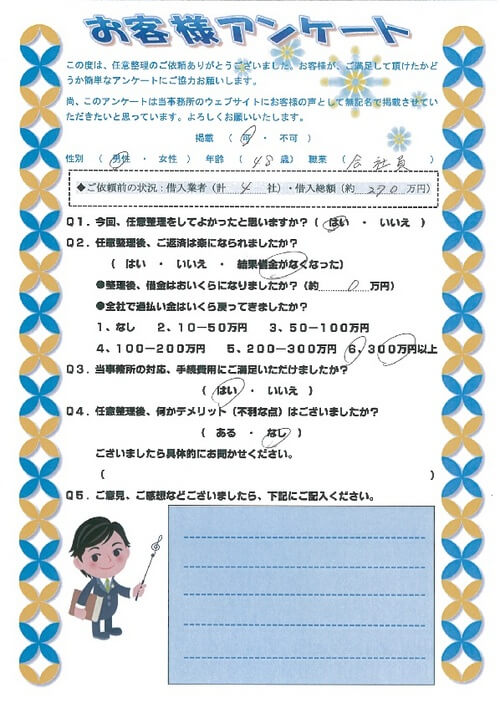 お客様アンケート
この度は、任意整理のご依頼ありがとうございました。お客様が、ご満足して頂けたかど
うか簡単なアンケートにご協力お願いします。
尚、このアンケートは当事務所のウェブサイトにお客様の声として無記名で掲載させてい
ただきたいと思っています。よろしくお願いいたします。
掲載 ( 可 ・ 不可 )
性別 ( 男性 ・ 女性 ) 年齢 ( 48 歳) 職業 ( 会社員 )
◆ご依頼前の状況：借入業者（計 4 社）・借入総額（約 270 万円）
Q1．今回、任意整理をしてよかったと思いますか？（ はい ・ いいえ ）
Q2．任意整理後、ご返済は楽になられましたか？
( はい ・ いいえ ・ 結果借金がなくなった)
●整理後、借金はおいくらになりましたか？（約 0 万円）
●全社で過払い金はいくら戻ってきましたか？
1、なし 2、10－50万円 3、50－100万円
4、100－200万円 5、200－300万円 6、300万円以上
Q3．当事務所の対応、手続費用にご満足いただけましたか？
( はい ・ いいえ )
Q4．任意整理後、何かデメリット（不利な点）はございましたか？
( ある ・ なし )
ございましたら具体的にお聞かせください。
( )
Q5．ご意見、ご感想などございましたら、下記にご記入ください。